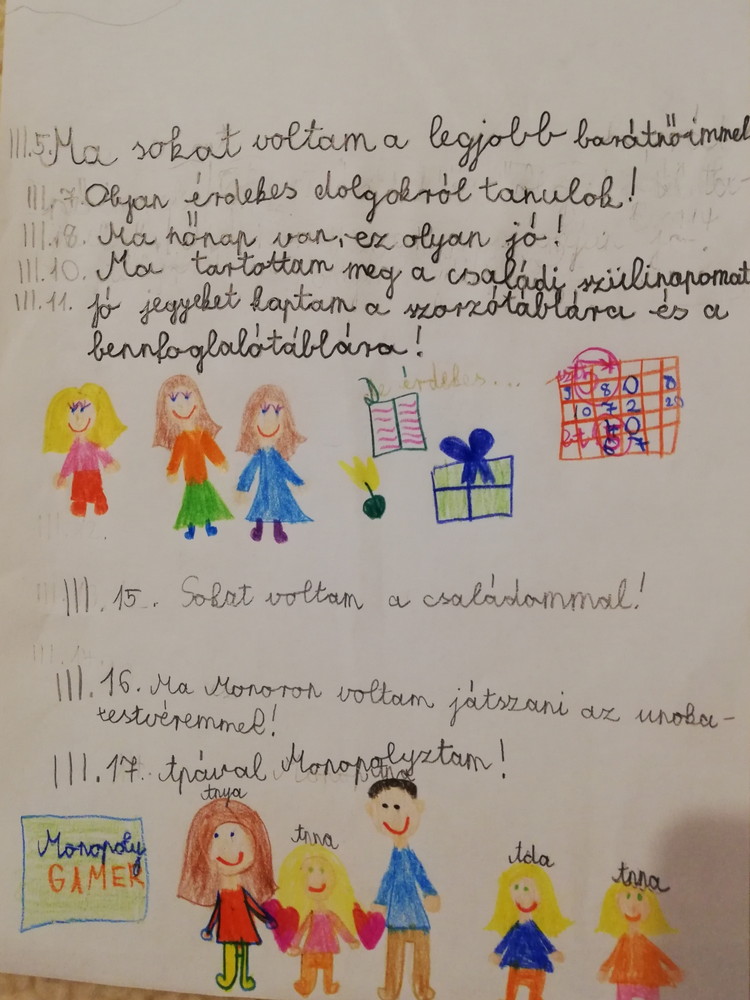 III.5. Ma sokat voltam a legjobb barátnőimmel
III.7. Olyan érdekes dolgokról tanulok!
III.8. Ma nőnap van, ez olyan jó!
III.10. Ma tartottam meg a családi szülinapomat
III.11. jó jegyeket kaptam a szorzótáblára és a
bennfoglalótáblára!
De érdekes...
III.15. Sokat voltam a családommal!
III.16. Ma Monoron voltam játszani az unoka-
testvéremmel!
III.17. Apával Monopolyztam!
Anya
Anna
Apa
Ada
Anna
Monopoly
GAMER